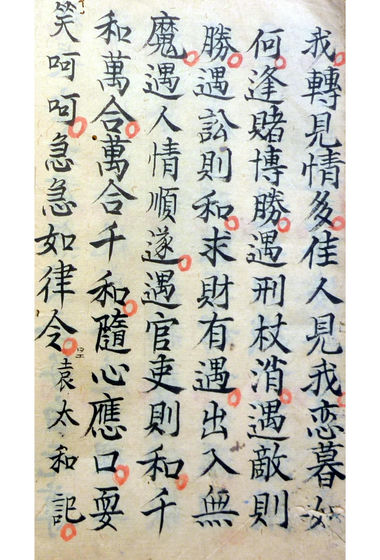 我轉見情多佳人見我恋暮如
何逢賭博勝遇刑杖消遇敵則
勝遇訟則和求財有遇出入無
魔遇人情順遂遇官吏則和千
和萬合萬合千和隨心應口耍
笑呵呵急急如律令 袁太和記